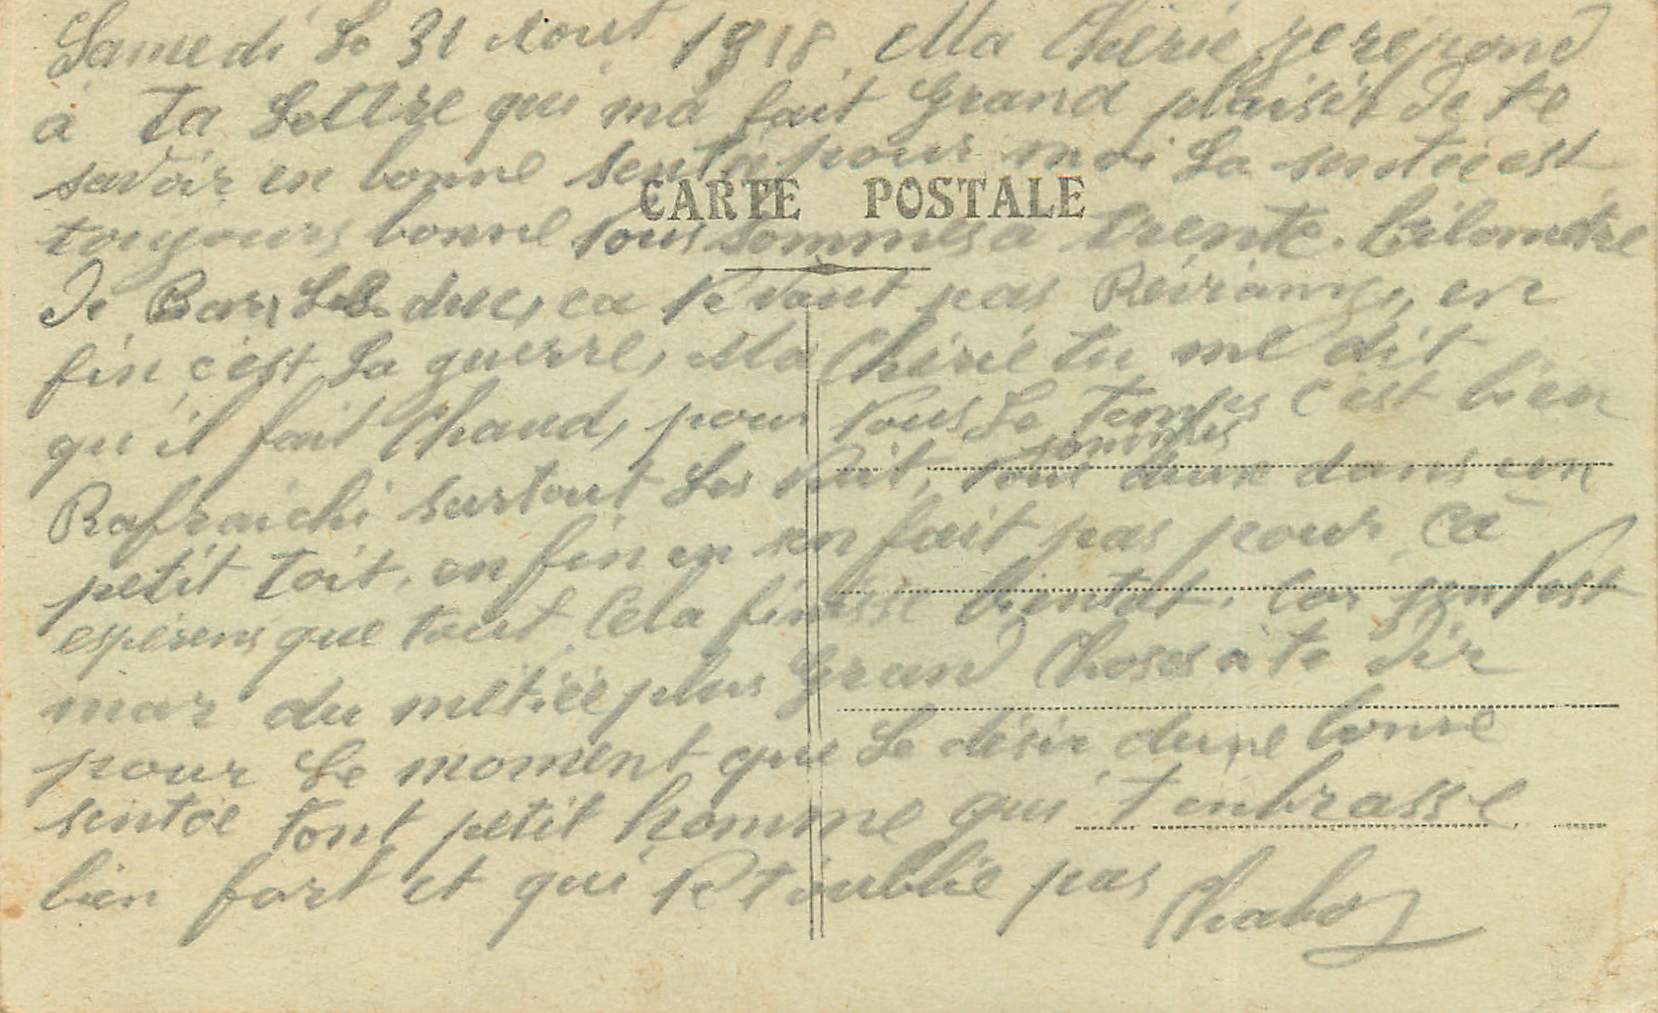 Samedi Le 31 Aout 1918 Ma Cherie je repond
à Ta Lettre qui ma fait Grand plaisir De te
savoir en bonne sentée pour moi La sentée est
CARTE POSTALE
toujours bonne Nous sommes a trente. kilometre
De Bar, Le duc, ca Ne vaut pas en
fin c'est La guerre, Ma Chérie tu me dit
qu'il fait Chaud, pour Nous Le Temps c'est bien
Rafraichi surtout Les Nuit, Nous sommes deux dans un
petit toit, en fin on s'en fait pas pour Cà
esperens que tout Cela finisse bientot. Car j'en
mar du metiée plus Grand Choses a te Dir
pour Le moment que Le désir dune bonne
sentée Tont petit homme qui t'enbrasse
bien fort et qui Ne t'oublie pas